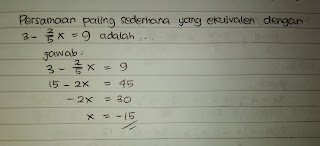 Persamaan paling sederhana yang ekuivalen dengan
3 - 2/5 x = 9 adalah ...
jawab :
3 - 2/5 x = 9
15 - 2x = 45
- 2x = 30
x = -15